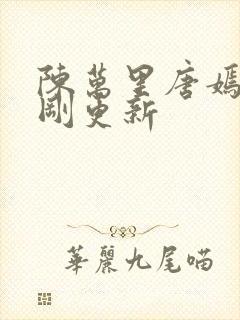 陳萬里唐嫣
剛更新
華麗九尾喵